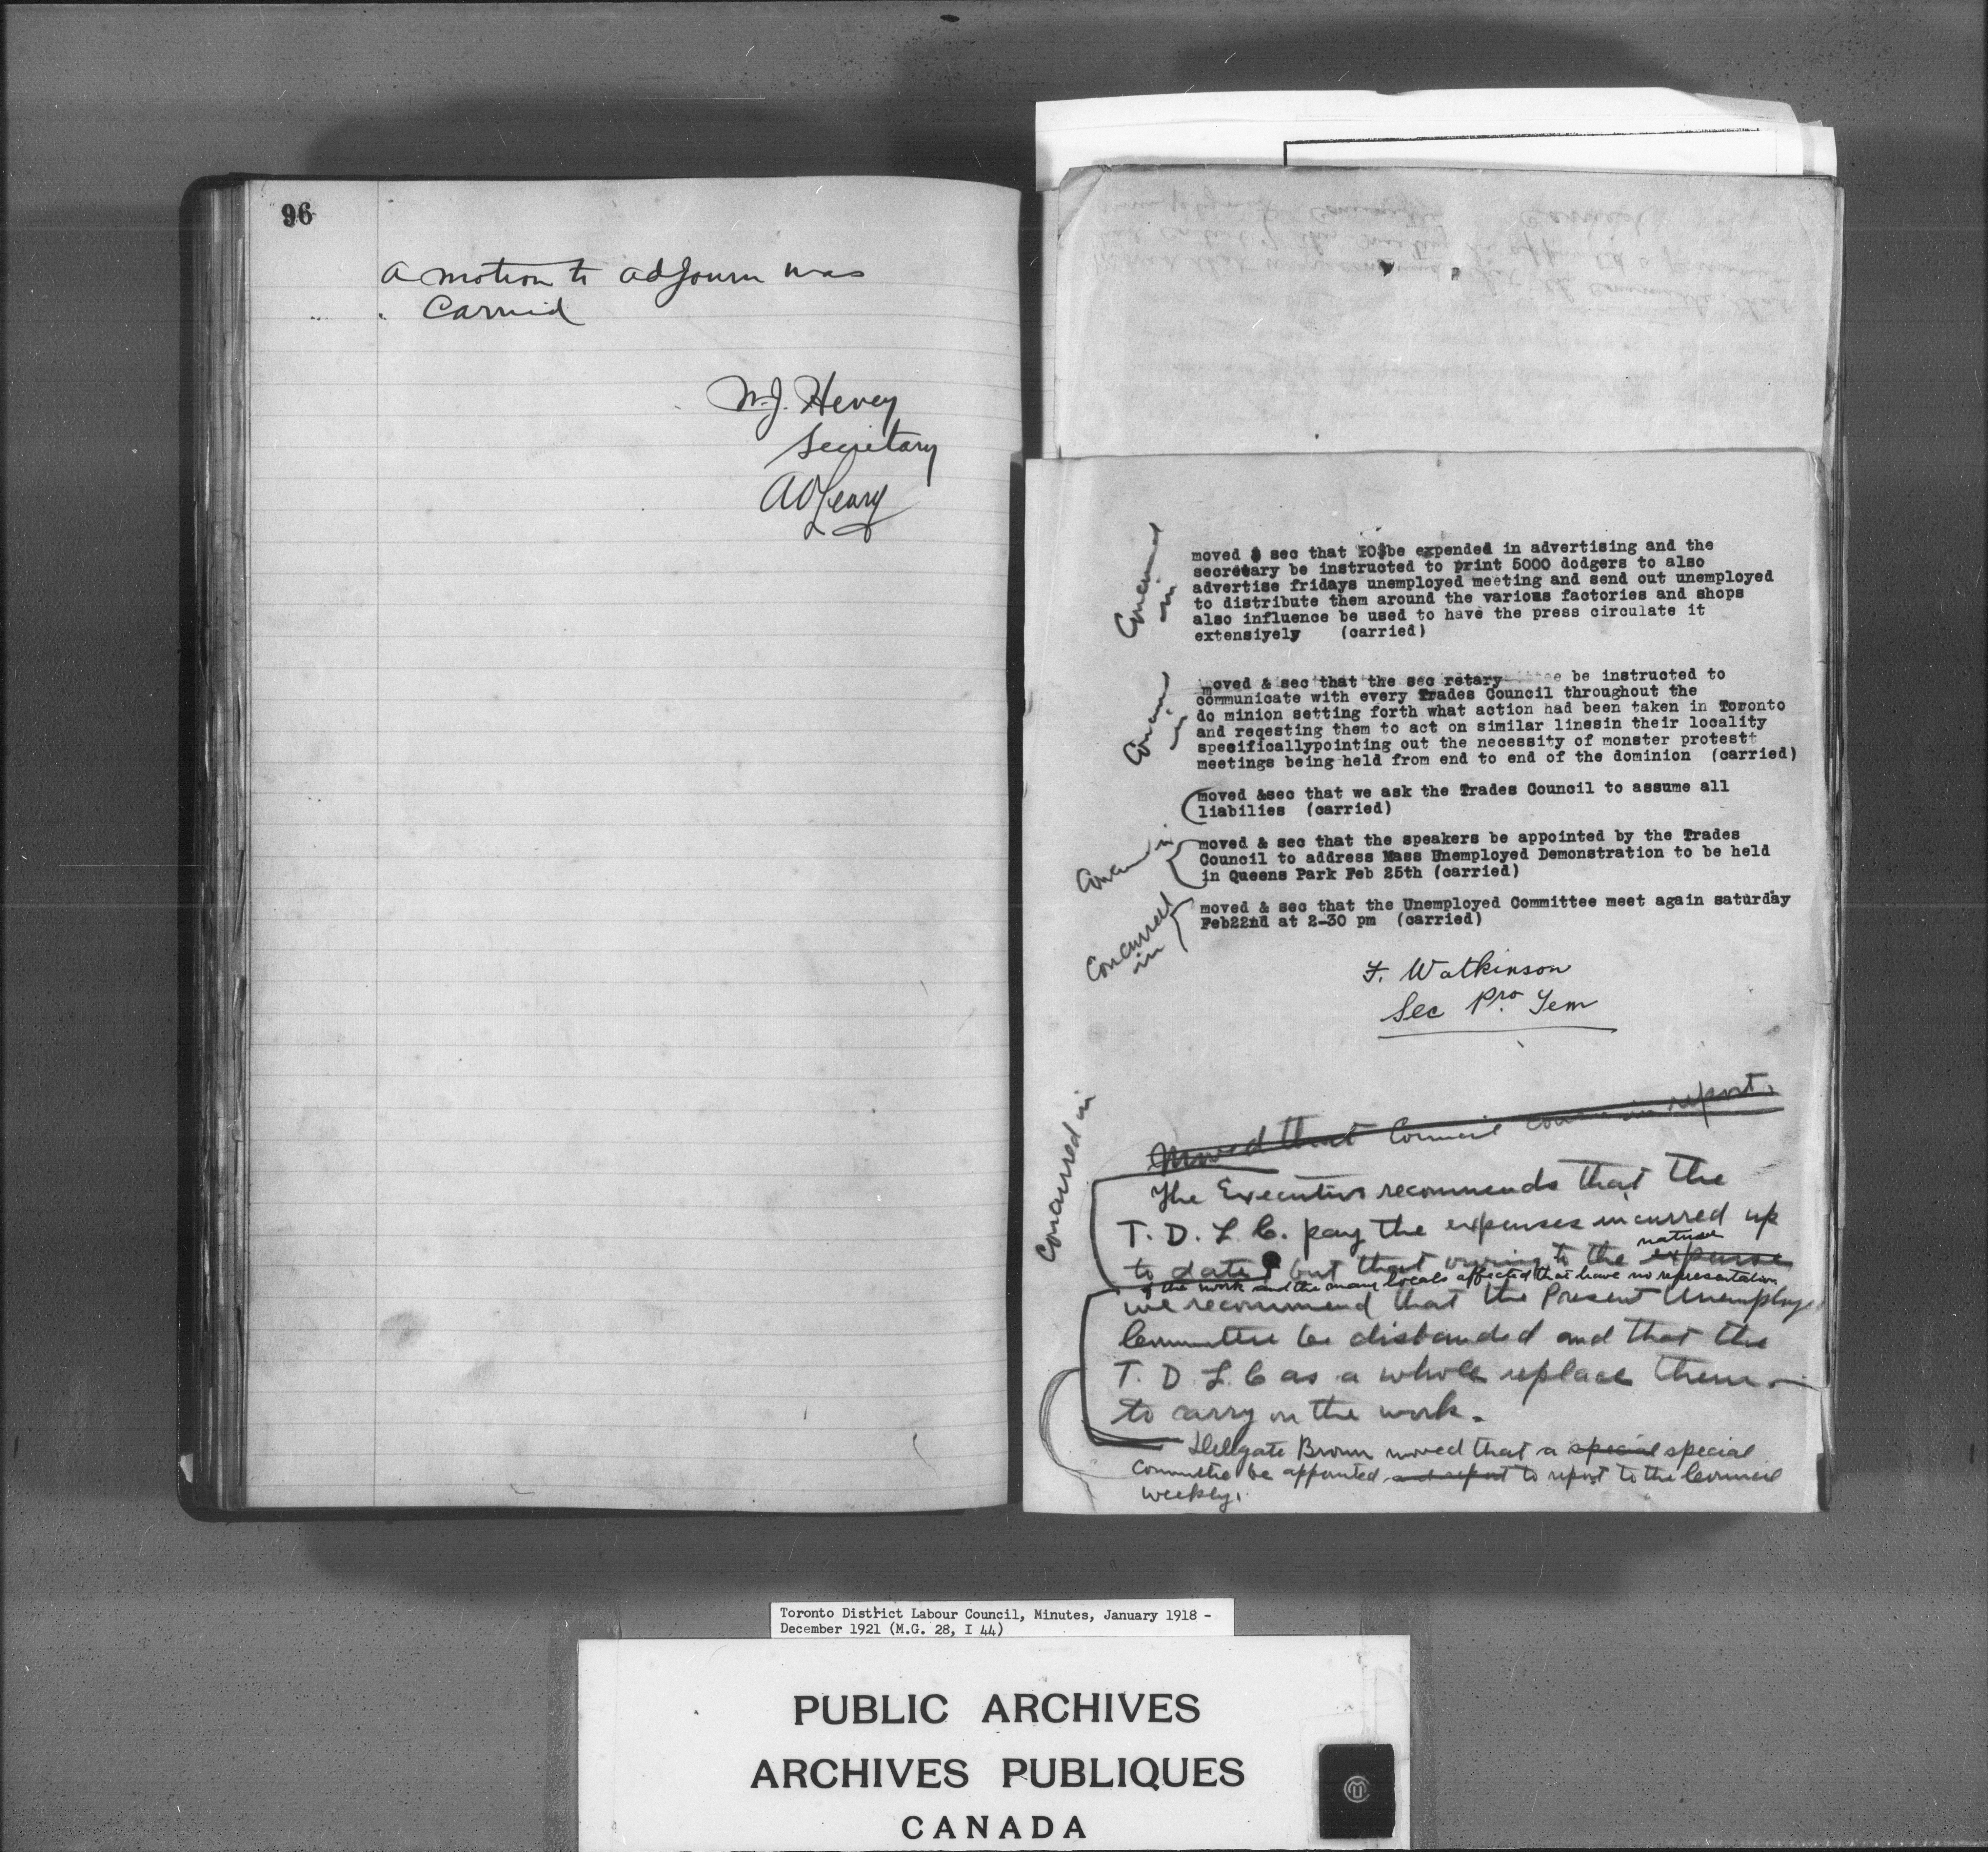 96
a motion to adjourn was
carried
W.J. Hevey
Secretary
A O'Leary
moved & sec that be expended in advertising and the
secretary be instructed to print 5000 dodgers to also
advertise fridays unemployed meeting and send out unemployed
to distribute them around the various factories and shops
also influence be used to have the press circulate it
extensiyely (carried)
Concurred
in
moved & sec that the sec retary be instructed to
communicate with every Trades Council throughout the
do minion setting forth what action had been taken in Toronto
and reqesting them to act on similar linesin their locality
specificallypointing out the necessity of monster protestt
meetings being held from end to end of the dominion (carried)
Concurred
in
moved &sec that we ask the Trades Council to assume all
liabilies (carried)
moved & sec that the speakers be appointed by the Trades
Council to address Mass Unemployed Demonstration to be held
in Queens Park Feb 25th (carried)
Concurred in
moved & sec that the Unemployed Committee meet again saturday
Feb22nd at 2-30 pm (carried)
Concurred
in
F. Watkinson
Sec Pro. Tem
Moved that Council concur in report.
Concurred in
The Executive recommends that the
T. D. L. C. pay the expenses incurred up
to date but that owing to the expense nature
of the work and the many locals affected that have no representation
we recommend that the Present Unemploye
Committee be disbanded and that the
T. D. L. C as a whole replace them
to carry on the work.
Delegate Brown moved that a special special
Committee be appointed and report to report to the Council
weekly.
Toronto District Labour Council, Minutes, January 1918 -
December 1921 (M.G. 28, I 44)
PUBLIC ARCHIVES
ARCHIVES PUBLIQUES
CANADA